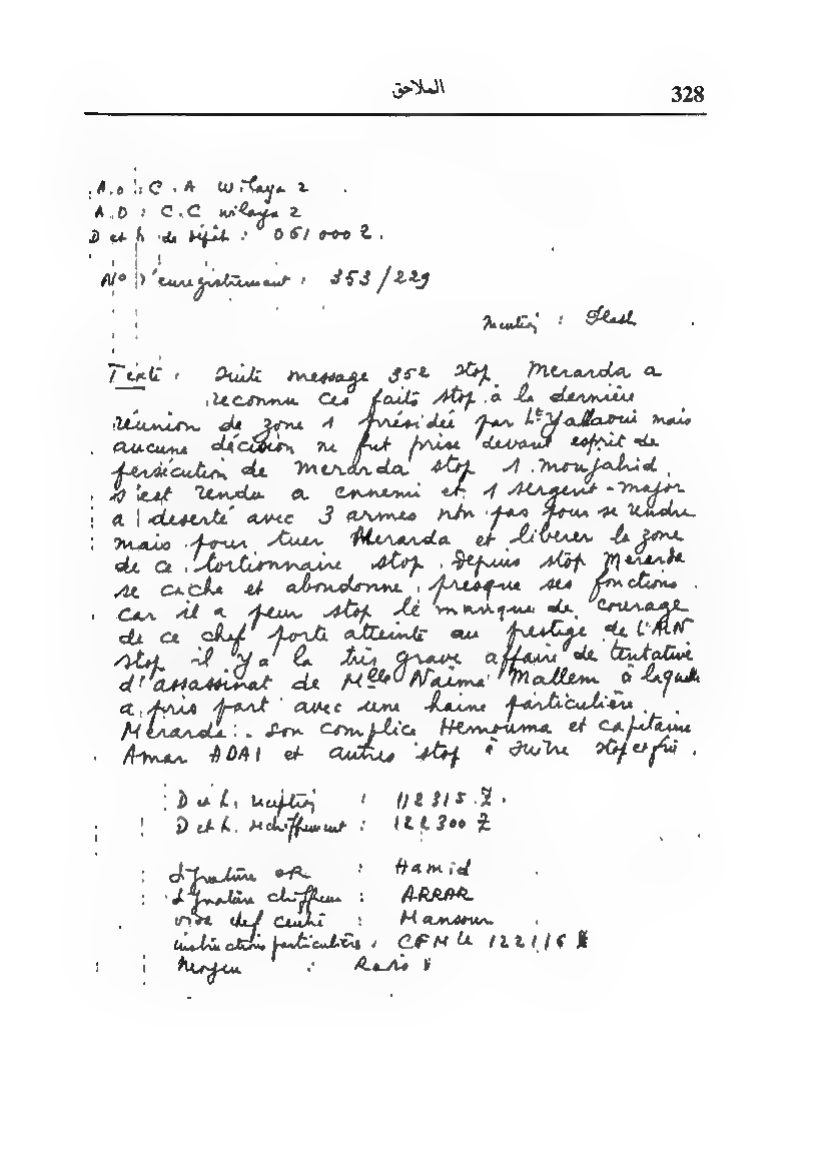 الملاحق
328
A.O : C.A Wilaya 2
A.D : C.C wilaya 2
D et h de dépôt : 061000 Z.
N° d'enregistrement : 353/229
Mention : Flash
Texte : Suite message 352 Stop Meranda a
reconnu ces faits stop à la dernière
réunion de zone 1 présidée par Lt Yallaoui mais
aucune décision ne fut prise devant esprit de
persécution de Meranda stop 1 moujahid
s'est rendu a ennemi et 1 sergent-major
a deserté avec 3 armes non pas pour se rendre
mais pour tuer Meranda et liberer la zone
de ce tortionnaire stop depuis stop Meranda
se cache et abondonne presque ses fonctions
car il a peur stop le manque de courage
de ce chef porte atteinte au prestige de l'ALN
stop il y'a la très grave affaire de tentative
d'assassinat de Melle Naima Mallem à laquelle
a pris part avec une haine particulière
Meranda. son complice Hemouma et capitaine
Amar ADAI et autres stop à suivre stop et fin.
D et h. reception : 112315 Z.
D et h. dechiffrement : 122300 Z
Signature OR : Hamid
Signature chiffreur : ARRAR
visa chef centre : Mansour
instructions particulière : CFM le 1221/6
Moyen : Radio